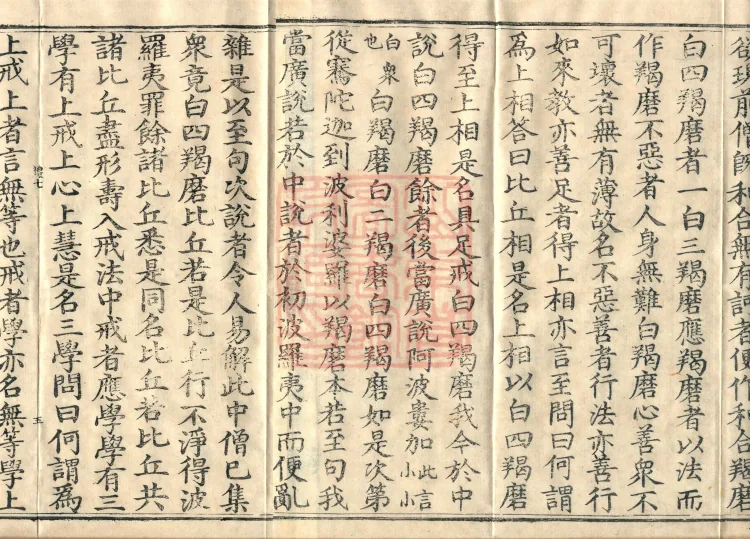 欲現前僧既和合無有訶者便作和合羯磨
白四羯磨者一白三羯磨應羯磨者以法而
作羯磨不惡者人身無難白羯磨心善衆不
可壞者無有薄故名不惡善者行法亦善行
如來教亦善足者得上相亦言至問曰何謂
爲上相答曰比丘相是名上相以白四羯磨
得至上相是名具足戒白四羯磨我今於中
說白四羯磨餘者後當廣說阿波婁加此言小小
白衆也白羯磨白二羯磨白四羯磨如是次第
從騫陀迦到波利婆羅以羯磨本若至句我
當廣說若於中說者於初波羅夷中而便亂
雜是以至句次說者令人易解此中僧已集
衆竟白四羯磨比丘若是比丘行不淨得波
羅夷罪餘諸比丘悉是同名比丘若比丘共
諸比丘盡形壽入戒法中戒者應學學有三
學有上戒上心上慧是名三學問曰何謂爲
五
上戒上者言無等也戒者學亦名無等學上